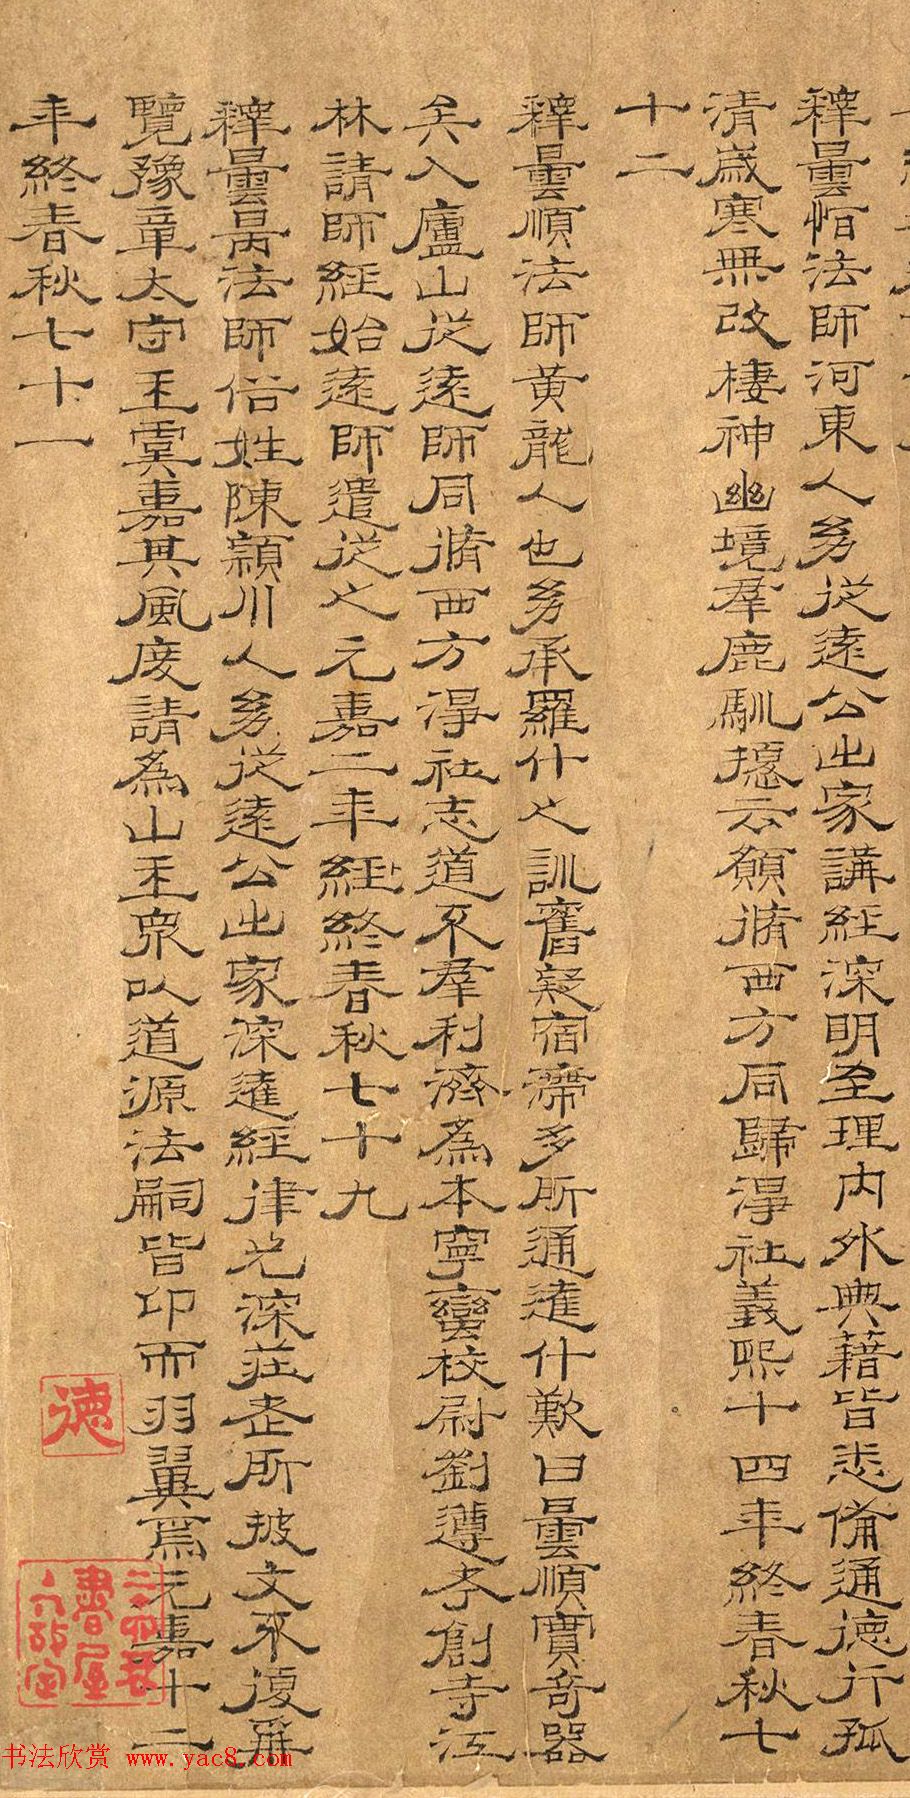 釋曇恒法師河東人多從遠公出家講經深明至理內外典藉皆悉備通德行孤
清歲寒無改棲神幽境群鹿馴擾云願脩西方同歸淨社義熙十四年終春秋七
十二
釋曇順法師黃龍人也多承羅什之訓舊疑宿滯多所通達什歎曰曇順實奇器
矣入廬山從遠師同脩西方淨社志道不群利濟為本寧蠻校尉劉遵孝創寺江
林請師經始遠師遣從之元嘉二年經終春秋七十九
釋曇昺法師俗姓陳潁川人多從遠公出家深達經律尤深莊老所披文不復再
覽豫章太守王虞嘉其風度請為山主眾以道源法嗣皆印而羽翼焉元嘉十二
年終春秋七十一
德
書屋
书法欣赏 www.yac8.com